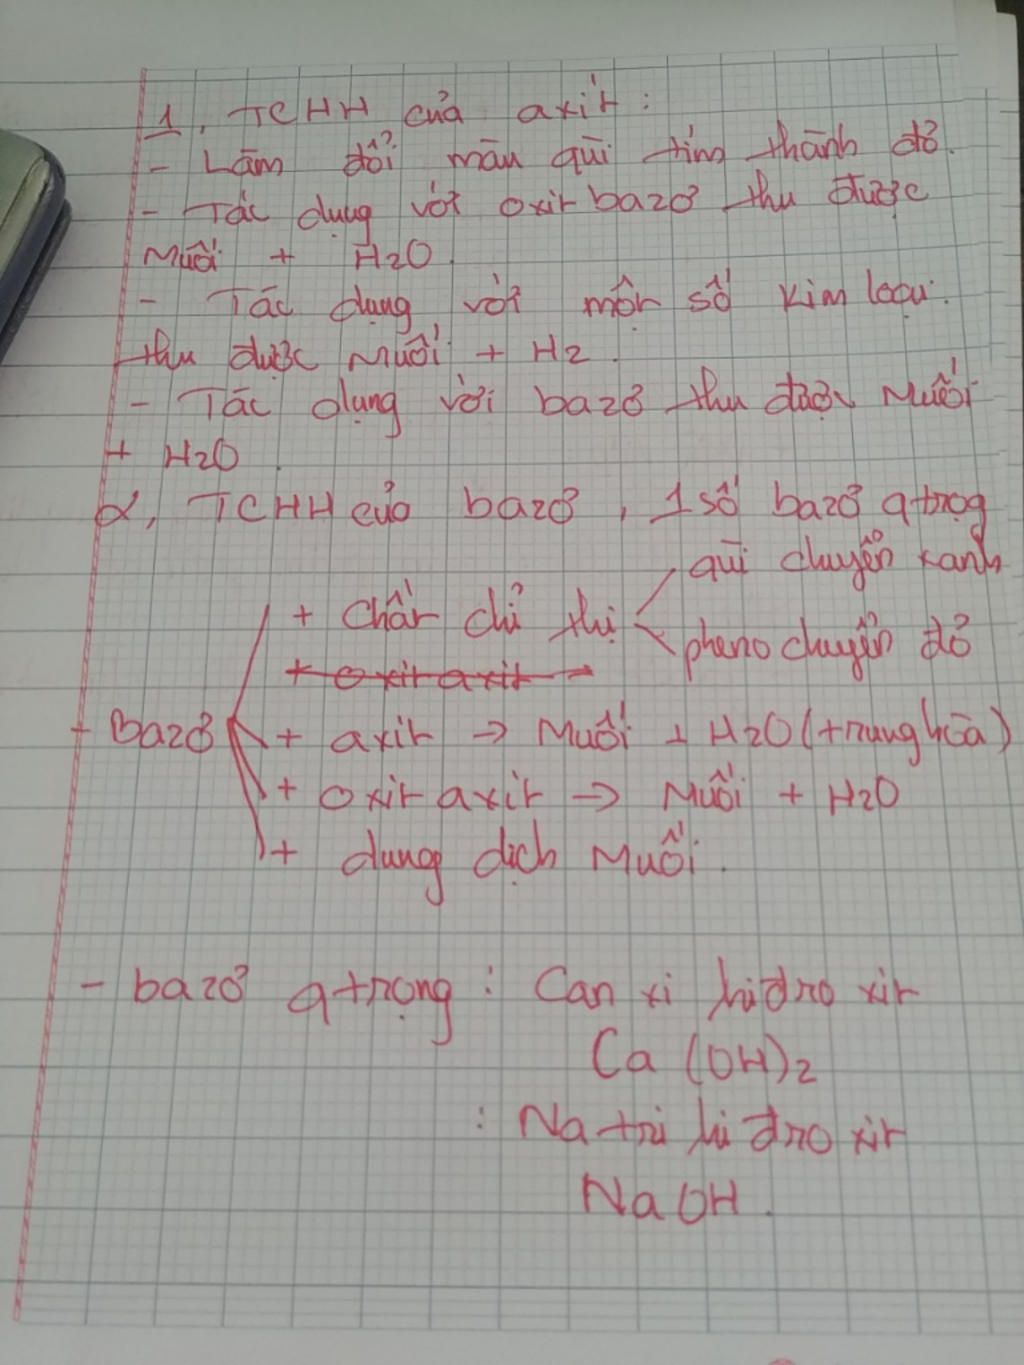 1, TCHH của axit:
- Làm đổi màu quì tím thành đỏ.
- Tác dụng với oxit bazơ thu được
Muối + H2O.
- Tác dụng với một số kim loại.
thu được Muối + H2.
- Tác dụng với bazơ thu được Muối
+ H2O.
2, TCHH của bazơ, 1 số bazơ qtrọg
quì chuyển xanh
+ Chất chỉ thị
pheno chuyển đỏ
+ oxit axit →
- Bazơ + axit → Muối + H2O (trung hòa)
+ oxit axit → Muối + H2O
+ dung dịch Muối.
- bazơ qtrọng : Can xi hiđro xit
Ca (OH)2
: Na tri hi đro xit
Na OH.